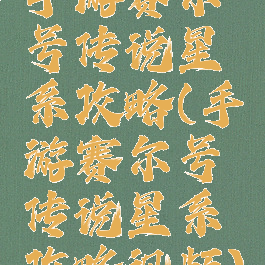 手游赛尔
号传说星
系攻略(手
游赛尔号
传说星系
攻略视频)